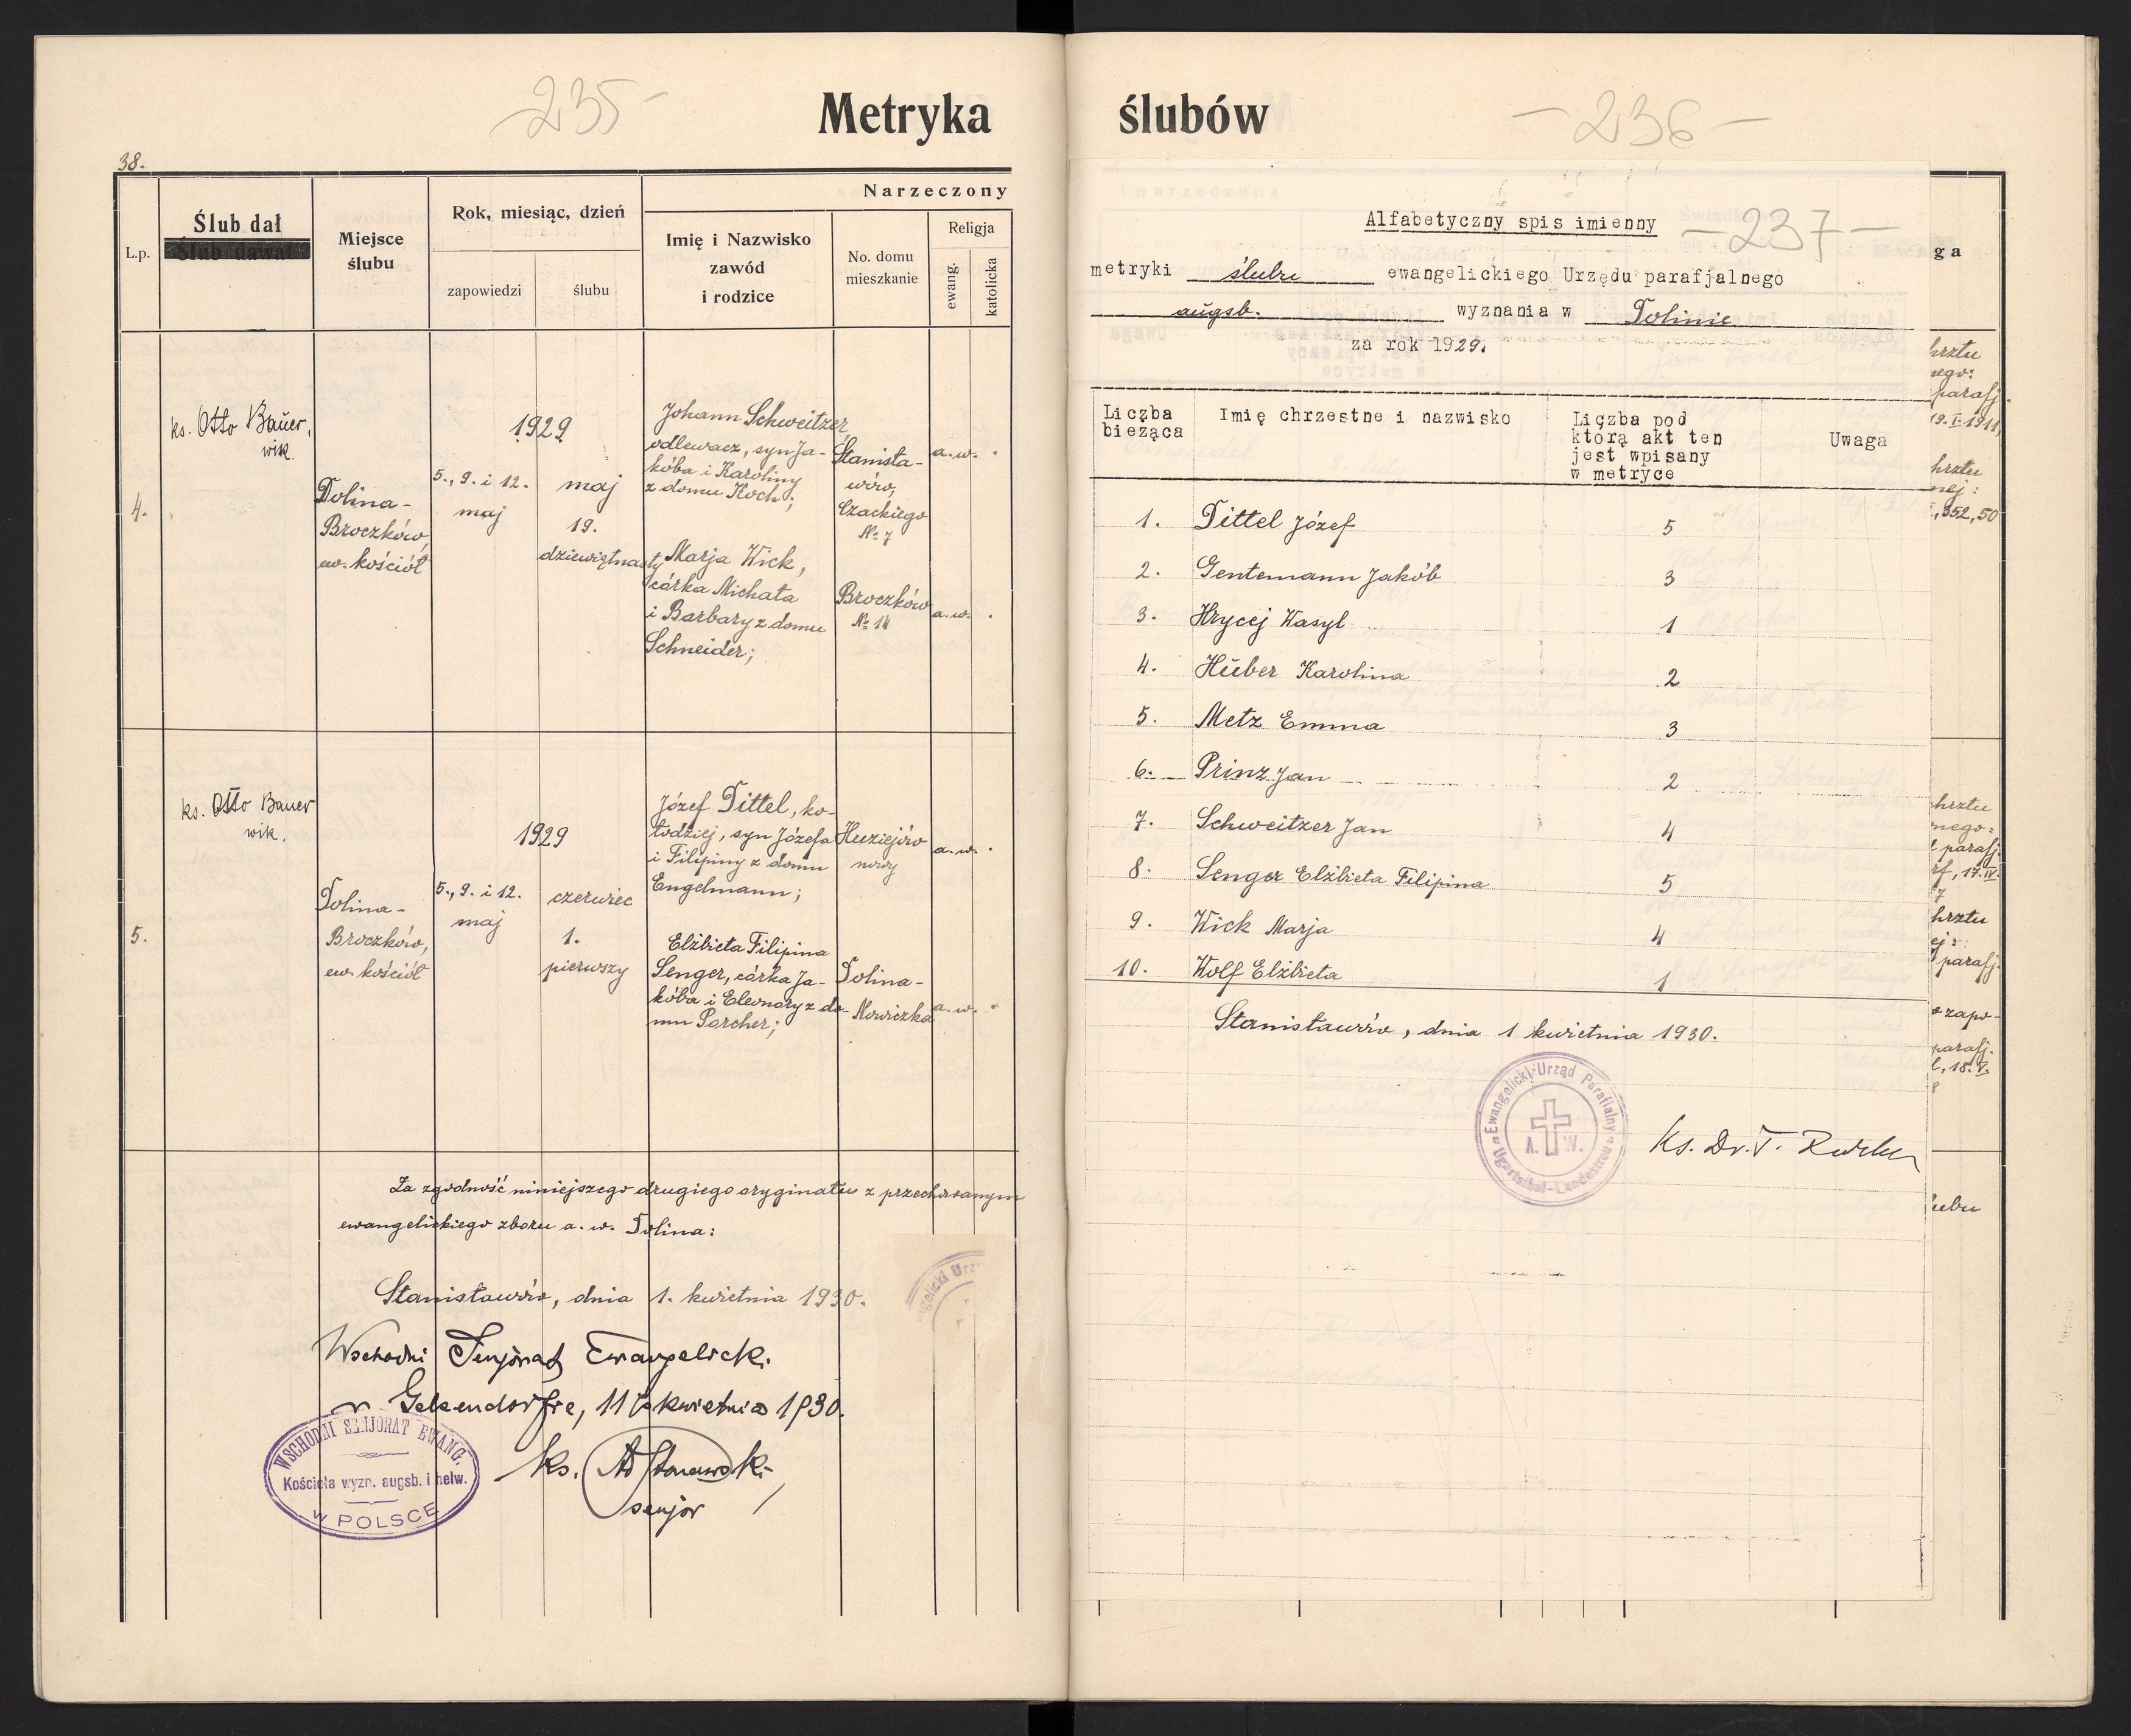 -235-
Metryka
38.
L.p.
Ślub dał
Ślub dawał
Miejsce
ślubu
Rok, miesiąc, dzień
zapowiedzi
ślubu
Narzeczony
Imię i Nazwisko
zawód
i rodzice
No. domu
mieszkanie
Religja
ewang.
katolicka
4.
ks. Otto Bauer,
wik.
Dolina-
Broczków,
ew. kościół
1929
5., 9. i 12.
maj
maj
19.
dziewiętnasty
Johann Schweitzer,
odlewacz, syn Ja-
kóba i Karoliny
z domu Koch;
Stanisła-
wów,
Czackiego
№ 7
a.w.
Marja Wick,
córka Michała
i Barbary z domu
Schneider;
Broczków
№ 14
a.w.
5.
ks. Otto Bauer
wik.
Dolina-
Broczków,
ew. kościół
1929
5., 9. i 12.
maj
czerwiec
1.
pierwszy
Józef Dittel, ko-
łodziej, syn Józefa
i Filipiny z domu
Engelmann;
Huziejów
nowy
a.w.
Elżbieta Filipina
Senger, córka Ja-
kóba i Eleonory z do-
mu Parcher;
Dolina-
Nowiczka
a.w.
Za zgodność niniejszego drugiego oryginału z przechowanym
ewangelickiego zboru a. w. Dolina:
Stanisławów, dnia 1. kwietnia 1930.
Wschodni Senjorat Ewangelicki
w Gelsendorfie, 11 kwietnia 1930.
WSCHODNI SENJORAT EWANG.
Kościoła wyzn. augsb. i helw.
W POLSCE
ks.
senjor
ślubów
-236-
Alfabetyczny spis imienny
-237-
metryki ślubu ewangelickiego Urzędu parafjalnego
augsb. wyznania w Dolinie
za rok 1929.
Liczba
bieżąca
Imię chrzestne i nazwisko
Liczba pod
którą akt ten
jest wpisany
w metryce
Uwaga
1. Dittel Józef 5
2. Gentemann Jakób 3
3. Hrycej Wasyl 1
4. Huber Karolina 2
5. Metz Emma 3
6. Prinz Jan 2
7. Schweitzer Jan 4
8. Senger Elżbieta Filipina 5
9. Wick Marja 4
10. Wolf Elżbieta 1
Stanisławów, dnia 1 kwietnia 1930.
Ewangelicki Urząd Parafialny
A. W.
Ugartsthal-Landestreu
Ks. Dr. T.
ga
hrztu
nego:
parafj.
19. I. 1911,
hrztu
nej:
, 352, 50
hrztu
nego:
parafj.
17. IV.
7
hrztu
ej:
parafj.
o zapo-
parafj.
18. V.
8
ubu